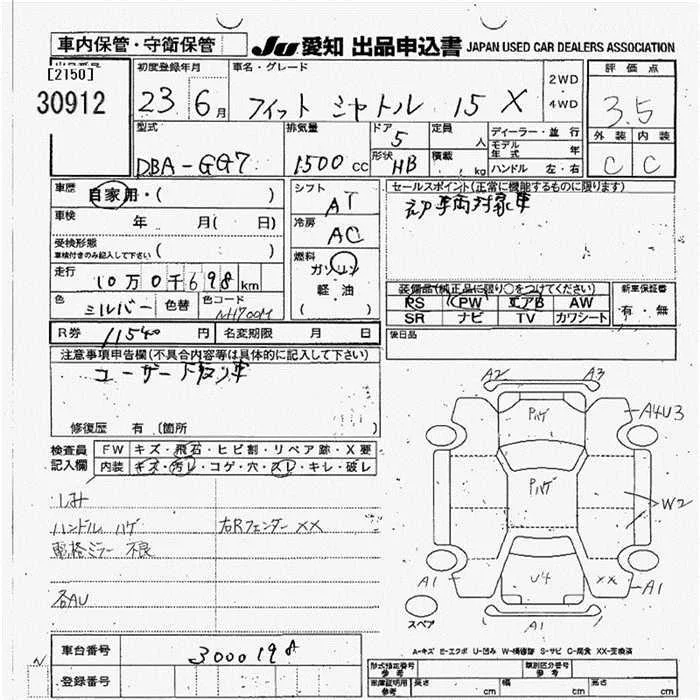 車内保管・守衛保管 JU 愛知 出品申込書 JAPAN USED CAR DEALERS ASSOCIATION
[2150]
30912
初度登録年月 車名・グレード 2WD ・ 4WD 評価点
23 6月 フィット シャトル 15 X 3.5
型式 排気量 ドア 定員 ディーラー・並行 外装 内装
DBA-GG7 1500cc 5 人 モデル年式 年 C C
形状 HB 積載 kg ハンドル 左・右
車歴 自家用・( ) シフト AT セールスポイント(正常に機能するものに限ります)
車検 年 月( 日) 冷房 AC
受検形態 ( )
車検付きのみ記入して下さい
燃料 ガソリン
軽・油
( )
走行 10万0千698km
装備品(純正品に限り○をつけてください) 新車保証書
PS PW エアB AW 有・無
SR ナビ TV カワシート
色 シルバー 色替 色コード NH700M
R券 11540円 名変期限 月 日 後日品
注意事項申告欄(不具合内容等は具体的に記入して下さい)
ユーザー下取り車
修復歴 有(箇所 )
検査員記入欄 FW キズ・飛石・ヒビ割・リペア跡・X要
内装 キズ・汚レ・コゲ・穴・スレ・キレ・破レ
しみ
ハンドル ハゲ 右Rフェンダー XX
電格ミラー 不良
各AU
A2 A3
Pハゲ A4U3
Pハゲ
W2
A1 U4 XX A1
A1
スペア
A-キズ E-エクボ U-凹み W-補修跡 S-サビ C-腐食 XX-交換済
車台番号 3000198
登録番号
型式指定番号 参考 類別区分番号 参考
車庫証明用 参考 長さ cm 幅 cm 高さ cm